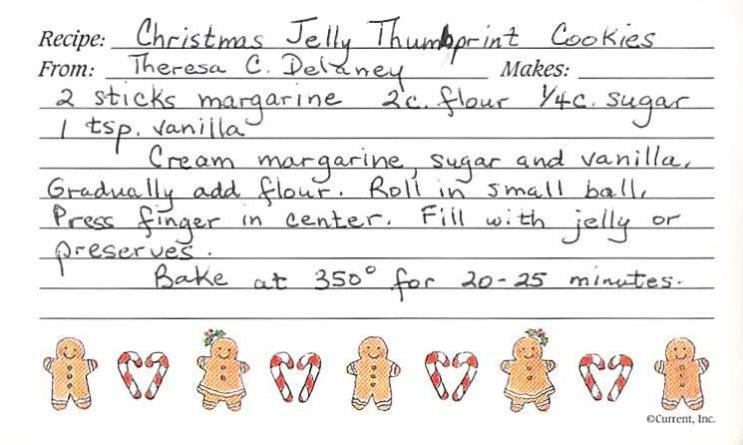 Recipe: Christmas Jelly Thumbprint Cookies
From: Theresa C. Delaney Makes:
2 sticks margarine 2c. flour 1/4c. sugar
1 tsp. vanilla
Cream margarine, sugar and vanilla.
Gradually add flour. Roll in small ball,
Press finger in center. Fill with jelly or
preserves.
Bake at 350° for 20-25 minutes.
©Current, Inc.